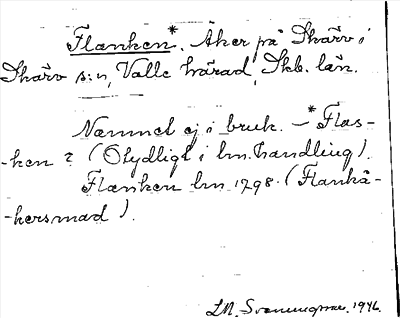 Flanken*. Åker på Skärv i
Skärv s:n, Valle härad, Skb. län.
Namnet ej i bruk. — *Flas-
-ken? (Otydligt i lm. handling).
Flanken lm 1798. (Flankå-
-kersmad).
LM. 1946.